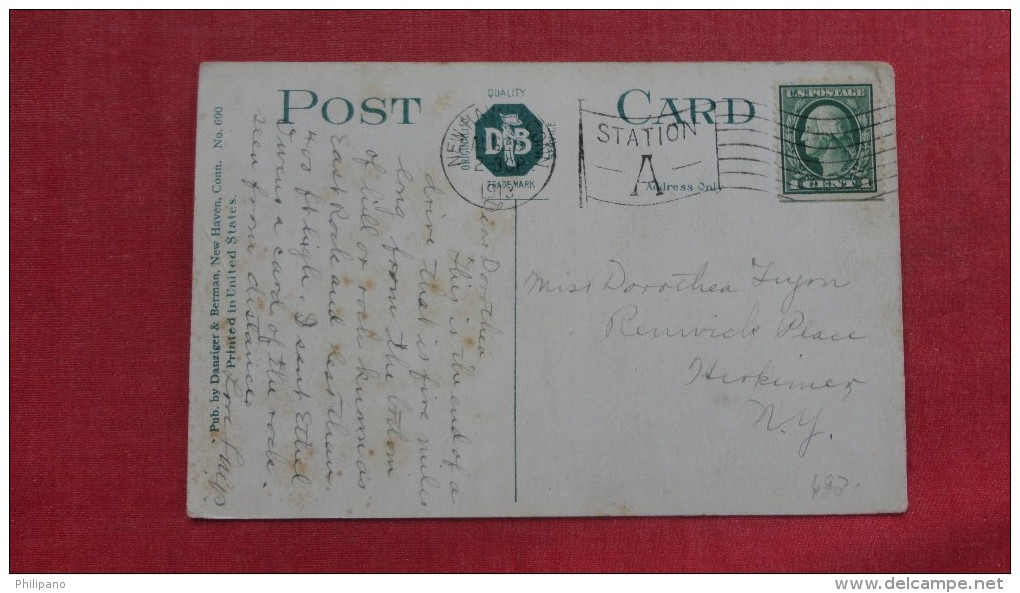 POST CARD
QUALITY
D B
TRADE MARK
NEW
1913
STATION
A
Address Only
U.S. POSTAGE
1 CENT 1
Pub. by Danziger & Berman, New Haven, Conn. No. 690
Printed in United States.
Dear Dorothea
This is the end of a
drive that is five miles
long from the bottom
of hill or rock known as
East Rock and less than
400 ft high. I sent Ethel
Owens a card of the rock
seen from distance
Love
Miss Dorothea Tryon
Renwick Place
Herkimer
N.Y.
693
Philipano
www.delcampe.net